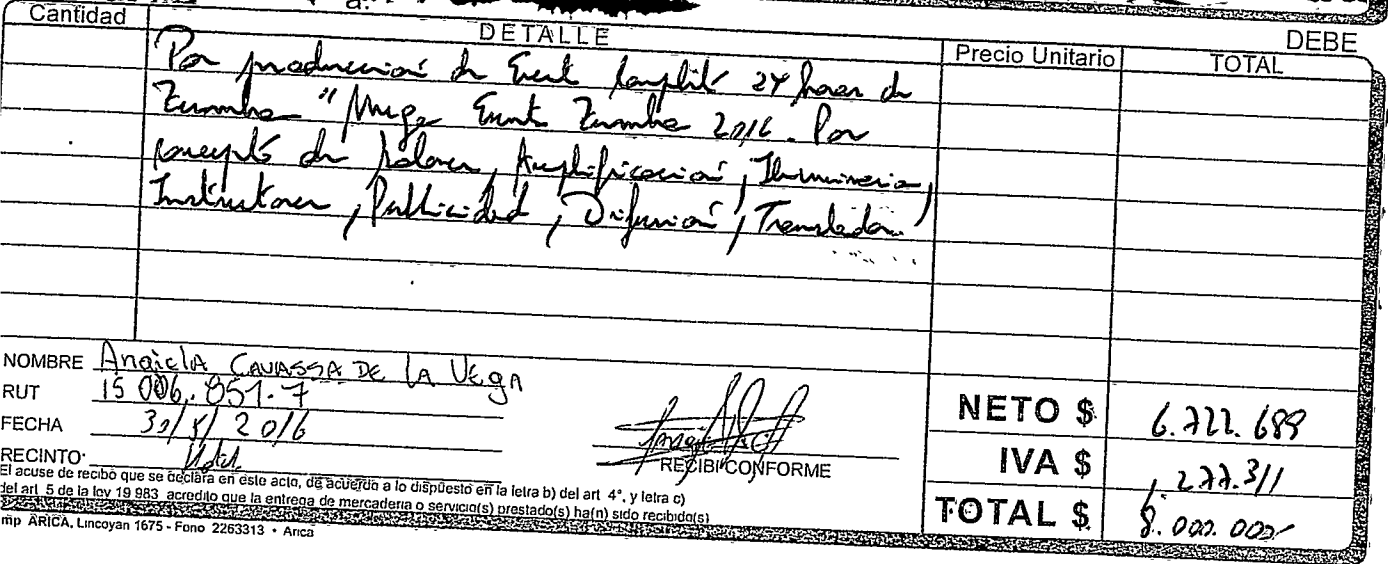 Cantidad
DETALLE
Precio Unitario
DEBE
TOTAL
Por producción de Event Completo 24 horas de
Zumba " Mega Event Zumba 2016. Por
concepto de Valores, Amplificación, Iluminaria,
Instructores, Publicidad, Difusión, Traslados.
NOMBRE Angiela CAVASSA DE LA VEGA
RUT 15 006.851.7
FECHA 30/5/2016
RECINTO
RECIBI CONFORME
El acuse de recibo que se declara en este acto, de acuerdo a lo dispuesto en la letra b) del art 4°, y letra c)
del art 5 de la ley 19 983 acredito que la entrega de mercaderia o servicio(s) prestado(s) ha(n) sido recibido(s)
NETO $ 6.722.689
IVA $ 1.277.311
TOTAL $ 8.000.000
mp ARICA, Lincoyan 1675 - Fono 2263313 • Arica